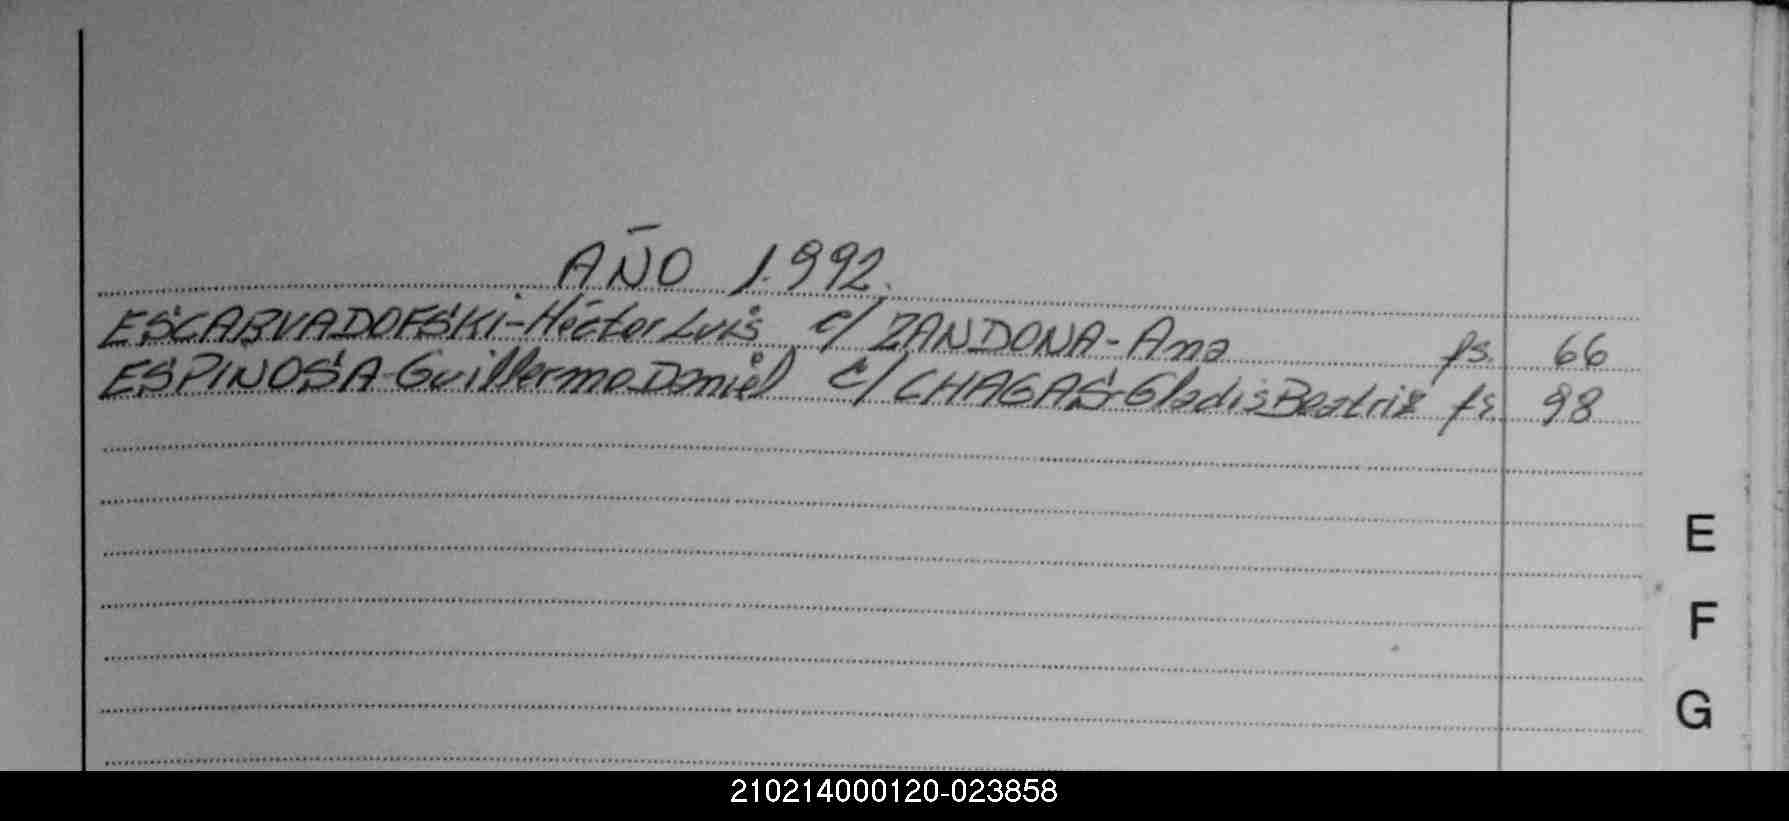 AÑO 1.992.
ESCARVADOFSKI-Héctor Luis c/ ZANDONA-Ana fs. 66
ESPINOSA-Guillermo Daniel c/ CHAGAS-Gladis Beatriz fs. 98
E
F
G
210214000120-023858